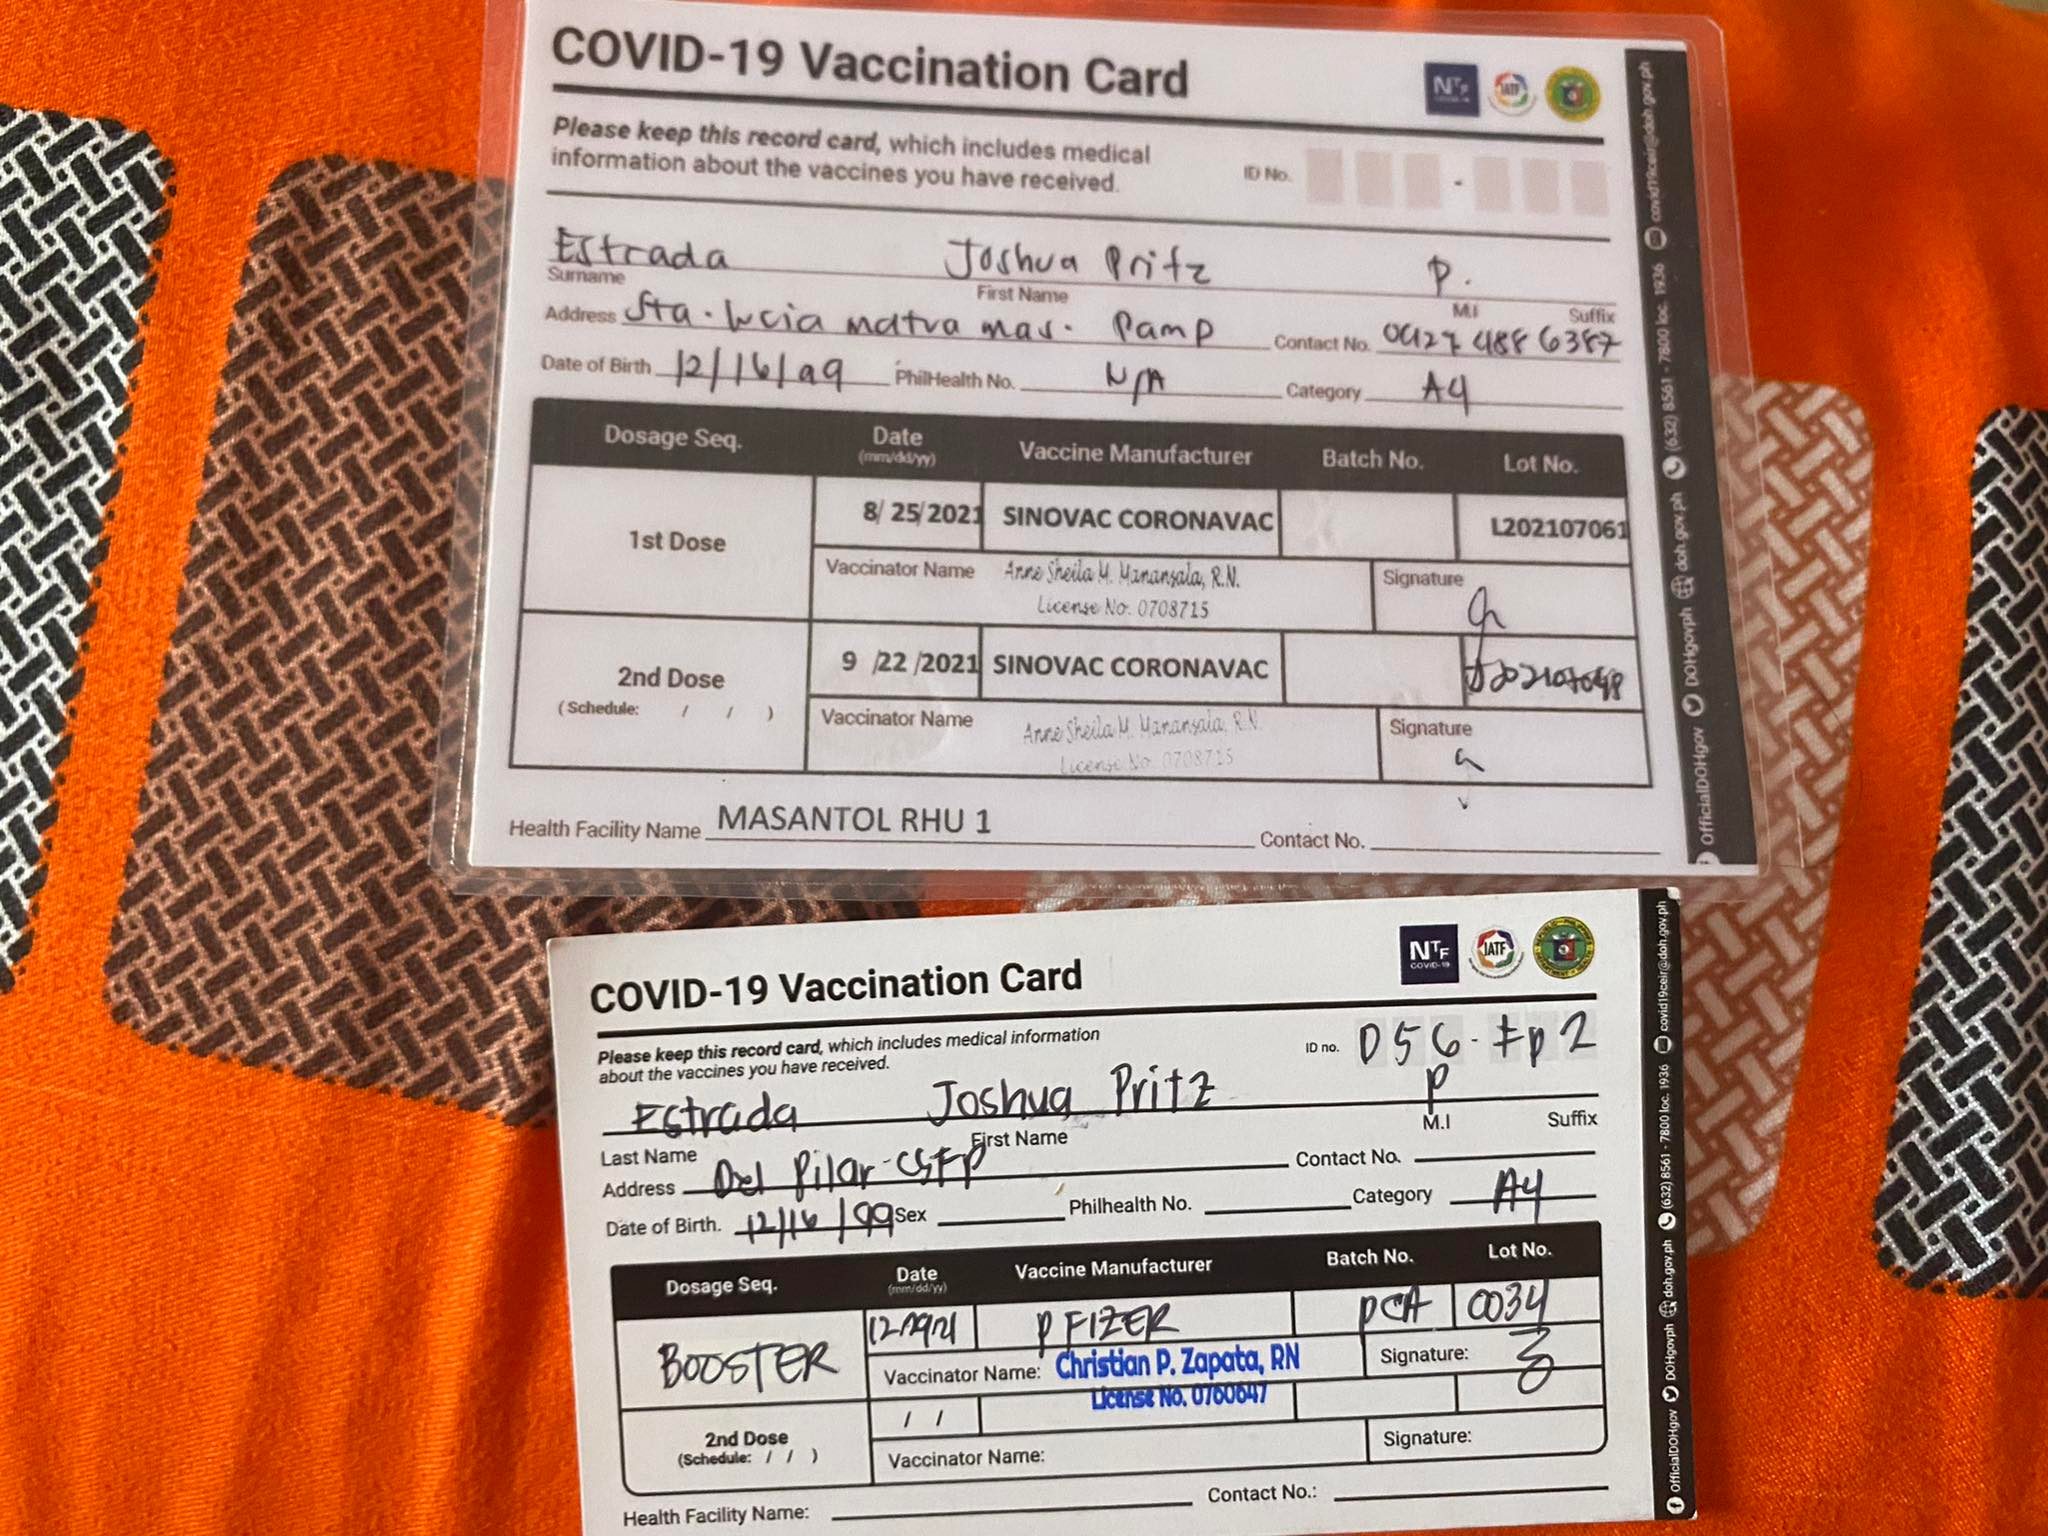 COVID-19 Vaccination Card
NTF IATF
Please keep this record card, which includes medical
information about the vaccines you have received.
ID No. -
Estrada Joshua Pritz P.
Surname First Name M.I Suffix
Address Sta. Lucia matua mas. Pamp Contact No. 0927 488 6387
Date of Birth 12/16/99 PhilHealth No. N/A Category A4
Dosage Seq. Date (mm/dd/yy) Vaccine Manufacturer Batch No. Lot No.
1st Dose 8/ 25/ 2021 SINOVAC CORONAVAC L202107061
Vaccinator Name Anne Sheila M. Manansala, R.N. Signature
License No. 0708715
2nd Dose 9 /22 /2021 SINOVAC CORONAVAC
(Schedule: / / ) Vaccinator Name Anne Sheila M. Manansala, R.N. Signature
License No. 0708715
Health Facility Name MASANTOL RHU 1 Contact No.
OfficialDOHgov DOHgovph doh.gov.ph (632) 8561 - 7800 loc. 1936 covid19ceir@doh.gov.ph
COVID-19 Vaccination Card
NTF COVID-19 IATF
Please keep this record card, which includes medical information
about the vaccines you have received.
ID no. D56-FP2
Estrada Joshua Pritz P
Last Name First Name M.I Suffix
Address Del Pilar-CSFP Contact No.
Date of Birth. 12/16/99 Sex Philhealth No. Category A4
Dosage Seq. Date (mm/dd/yy) Vaccine Manufacturer Batch No. Lot No.
BOOSTER PFIZER PCA 0034
Vaccinator Name: Christian P. Zapata, RN Signature:
License No. 0760647
/ /
2nd Dose
(Schedule: / / ) Vaccinator Name: Signature:
Health Facility Name: Contact No.:
OfficialDOHgov DOHgovph doh.gov.ph (632) 8561 - 7800 loc. 1936 covid19ceir@doh.gov.ph